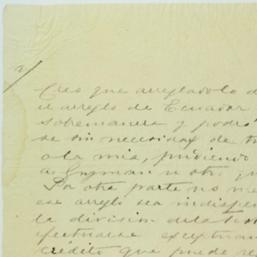 2/
Creo que arreglado lo d
el arreglo de Ecuador
sobremanera y podrá
se sin necesidad de t
a la mia, pudiendo
a Guzman u otro, q
Por otra parte no me
ese arreglo sea indispen
la division de la
efectuarse exceptuan
crédito que puede re